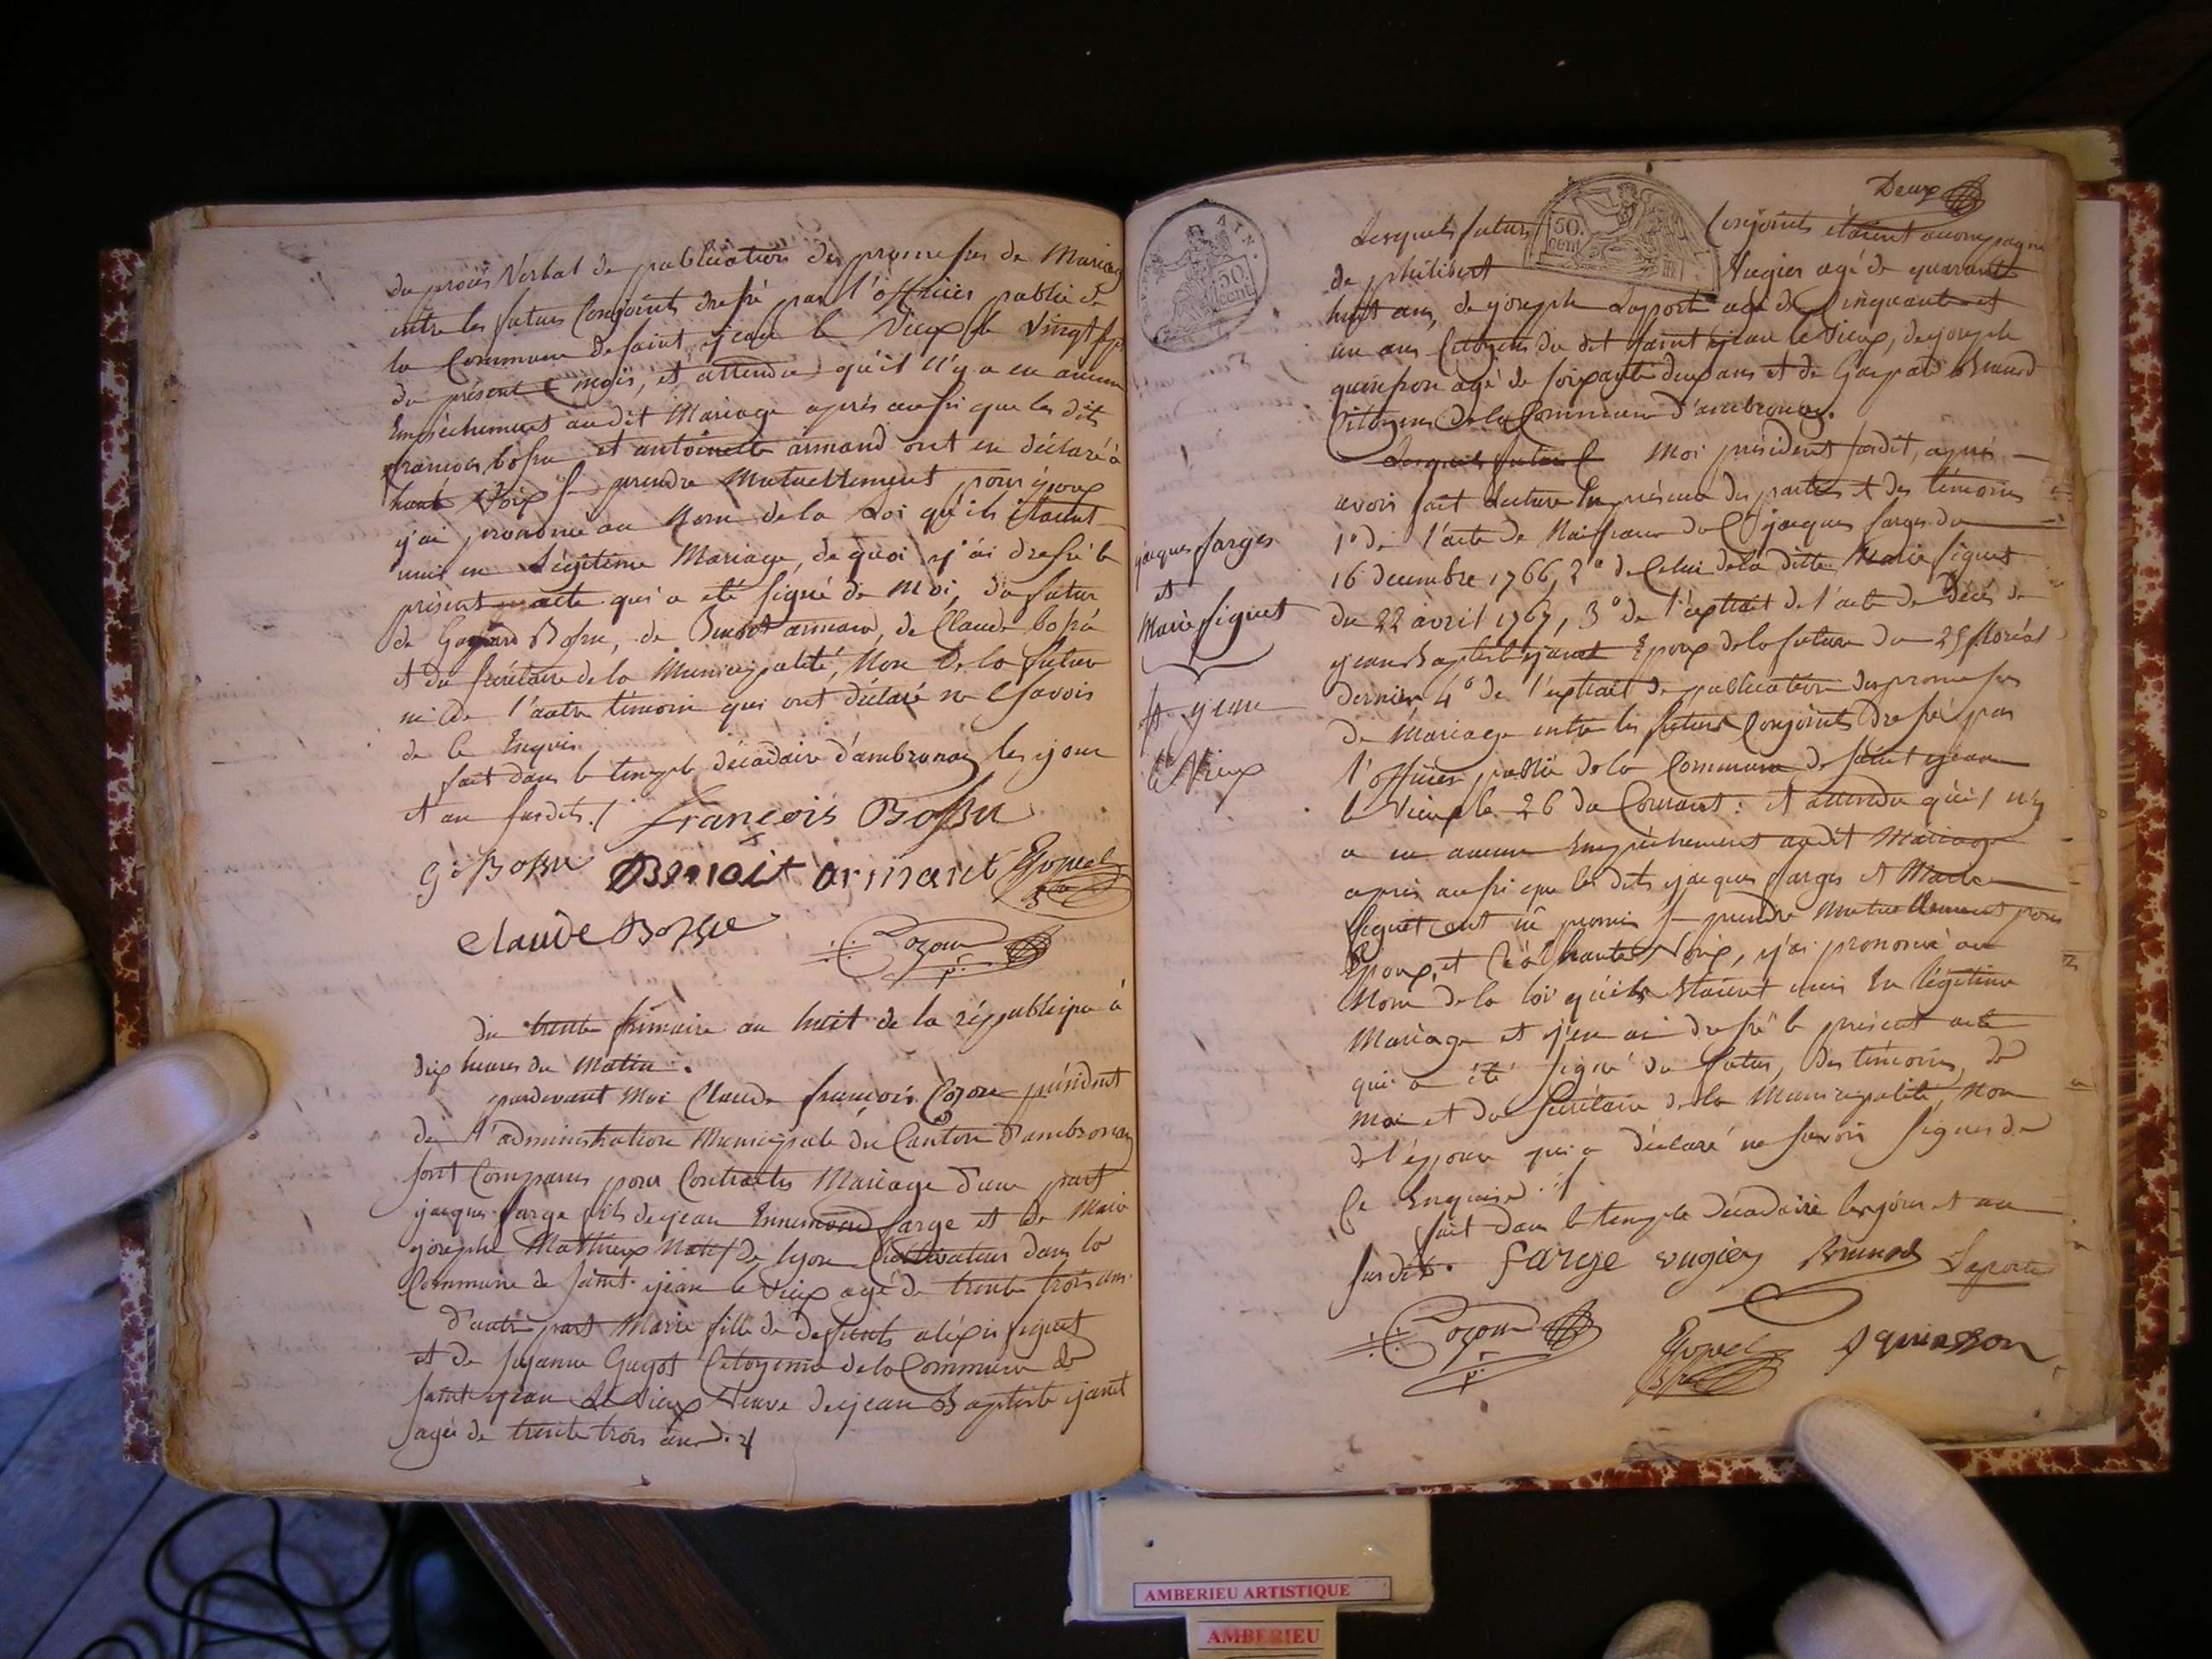 du procès Verbal de publication des promesses de Mariage
entre les futurs Conjoints dressé par l'officier public de
la Commune de saint jean le Vieux le Vingt sept
du présent mois, et attendu qu'il n'y a eu aucun
Empêchement au dit Mariage après aussi que les dits
françois bossu et antoinette armand ont eu déclaré à
haute Voix se prendre Mutuellement pour époux
j'ai prononcé au Nom de la Loi qu'ils étaient
unis en Légitime Mariage, de quoi j'ai dressé le
présent acte qui a été signé de Moi, du futur
de Gaspard Bossu, de Benoit armand, de Claude bossu
et du secrétaire de la Municipalité, Non de la future
ni de l'autre témoin qui ont déclaré ne savoir
de ce Enquis.
fait dans le temple décadaire d'ambronay les jour
et an susdits./ françois Bossu
G. Bossu Benoit armant
Claude Bossu Cozon
du trente frimaire an huit de la république à
dix heures du Matin.
pardevant Moi Claude françois Cozon président
de l'administration Municipale du Canton d'ambronay
sont Comparus pour Contracter Mariage d'une part
jacques farge fils de jean Ennemond farge et de Marie
josephe Mathieux Natif de lyon Cultivateur dans la
Commune de saint jean le Vieux agé de trente trois ans.
d'autre part Marie fille de deffunts aléxis figuet
et de susanne Guyot Citoyenne de la Commune de
saint jean Le Vieux Veuve de jean Baptiste janet
agée de trente trois ans.
Deux
Lesquels futurs Conjoints étaient accompagné
de philibert Vugier agé de quarante
huit ans, de joseph Laporte agé de Cinquante et
un ans Citoyens du dit saint jean le Vieux, de joseph
quinson agé de soixante deux ans et de Gaspard brunod
Citoyens de la Commune d'ambronay.
Lesquels futurs Moi président susdit, après
avoir fait Lecture En présence des parties et des témoins
1° de l'acte de Naissance du C. jacques farges du
16 decembre 1766, 2° de Celui de la ditte Marie figuet
du 22 avril 1767, 3° de l'extrait de l'acte de Décès de
jean Baptiste janet Epoux de la future du 25 floréal
dernier 4° de l'extrait de publication des promesses
de Mariage entre les futurs Conjoints dressé par
l'officier public de la Commune de saint jean
le Vieux le 26 du Courant: et attendu qu'il n'y
a eu aucun Empêchement au dit Mariage
après aussi que les dits jacques farges et Marie
figuet ont eu promis se prendre Mutuellement pour
Epoux, et Ce à haute Voix, j'ai prononcé au
Nom de la loi qu'ils étaient unis En légitime
Mariage et j'en ai dressé le présent acte
qui a été signé du futur, des témoins, de
Moi et du Secrétaire de la Municipalité, Non
de l'épouse qui a déclaré ne savoir signer de
Ce Enquise./
fait dans le temple décadaire les jour et an
susdits. farge vugier Brunod Laporte
Cozon J quinson
jacques farges
et
Marie figuet
St jean
le Vieux
AIN.
50
cent
50.
cent
AMBERIEU ARTISTIQUE
AMBERIEU